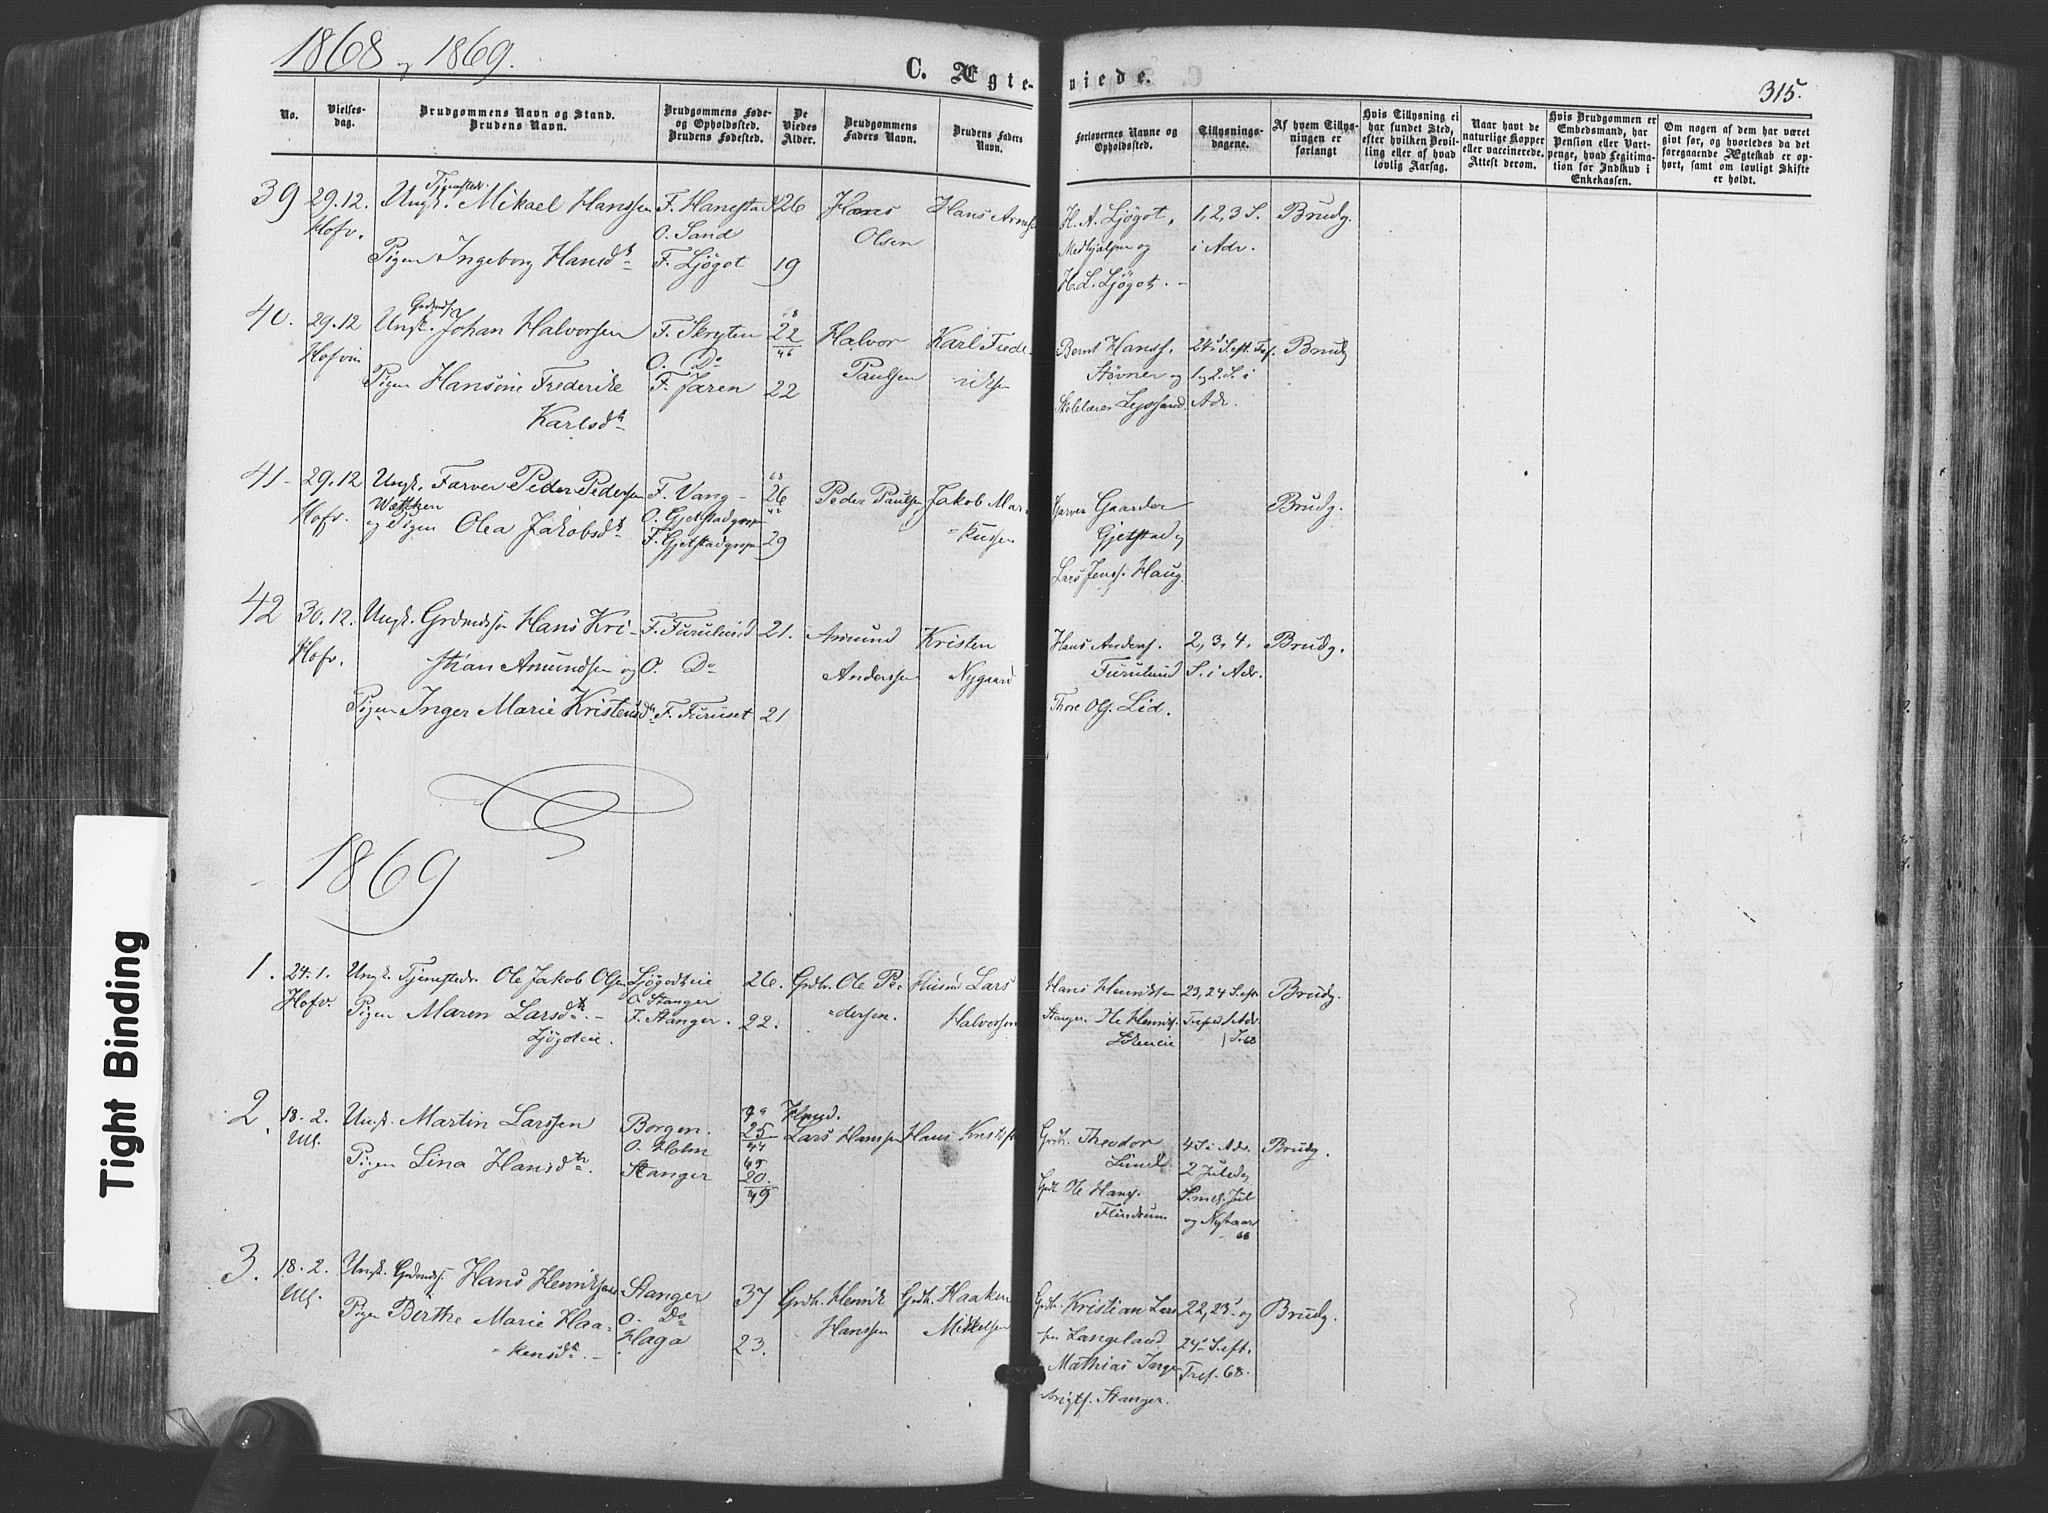 1868 og 1869.
C. Ægteviede.
315.
No.
Vielsesdag.
Brudgommens Navn og Stand.
Brudens Navn.
Brudgommens Føde-
og Opholdssted.
Brudens Fødested.
De
Viedes
Alder.
Brudgommens
Faders Navn.
Brudens Faders
Navn.
Forlovernes Navne og
Opholdssted.
Tillysnings-
dagene.
Af hvem Tillys-
ningen er
forlangt
Hvis Tillysning ei
har fundet Sted,
efter hvilken Bevil-
ling eller af hvad
lovlig Aarsag.
Naar havt de
naturlige Kopper
eller vaccinerede.
Attest derom.
Hvis Brudgommen er
Embedsmand, har
Pension eller Vart-
penge, hvad Legitima-
tion for Indskud i
Enkekassen.
Om nogen af dem har været
givt før, og hvorledes da det
foregaaende Ægteskab er op-
hørt, samt om lovligt Skifte
er holdt.
39 29.12. Hofv.
Tjenestedr.
Ungk. Mikael Hanssen
Pigen Ingeborg Hansdtr
F. Hanestad
O. Sand
F. Ljøgot
26
19
Hans
Olsen
Hans Arnes
H. A. Ljøgot,
Medhjælper og
H. L. Ljøgot.
1, 2, 3 S.
i Adv.
Brudg.
40. 29.12 Hofvin
Grdmds
Ungk. Johan Halvorsen
Pigen Hansine Frederike
Karlsdtr
F. Skryten
O. Do
F. Jaren
68
22
46
22
Halvor
Paulsen
Karl Frede-
riksen
Bernt Hanss.
Støvner og
Skolelærer
24 S. eft. Tref.
1 og 2. S. i
Adv.
Brudg
41 29.12 Hofv.
Ungk. Farver Peder Pedersen
og Pigen Olea Jakobsdtr
F. Vang
O. Gjetstad
F. Gjetstad
68
26
42
29
Peder Paulsen
Jakob Mar-
kussen
Farver Gaarder
Gjetstad og
Lars Jenss. Haug.
Brudg.
42 30.12. Hofv.
Ungk. Grdmdssøn Hans Kri-
stian Amundsen og
Pigen Inger Marie Kristensdtr
F. Furulund
O. Do
F. Furuset
21.
21
Amund
Anderssen
Kristen
Nygaard
Hans Anders.
Furulund
Thore Ols. Lid.
2, 3, 4,
S. i Adv.
Brudg.
1869
1. 24.1. Hofv.
Ungk. Tjenestedr. Ole Jakob Olsen
Pigen Maren Larsdtr
Ljøgodteie.
Ljøgodteie
O. Stanger
F. Stanger.
26.
22.
Grdbr. Ole Pe-
dersen.
Husmd Lars
Halvorsen
Hans Henriksen
Stanger. Ole Henriks.
23, 24 S. eft.
Tref og 1 Adv.
S. 68
Brudg.
2. 18.2. Ull.
Ungk. Martin Larssen
Pigen Lina Hansdtr.
Borgen.
O. Holm
Stanger
69
25
44
69
20
49
Husmd.
Lars Hanssen
Hans Kristofs
Grdbr. Theodor
Lunde.
Grdbr. Ole Hans.
Flindrum
4 S. i Adv.
2 Juledag
S. mel. Jul
og Nytaar
68
Brudg.
3. 18.2. Ull.
Ungk. Grdmds. Hans Henriksen
Pigen Berthe Marie Haa-
kensdtr.
Stanger
O. Do
Haga
37
23.
Grdbr. Henrik
Hanssen
Grdbr. Haaken
Mikkelsen
Grdbr. Kristian Lars
sen Langeland
Mathias Inge-
brigts. Stanger.
22, 23 og
24 S. eft.
Tref. 68.
Brudg.
Tight Binding